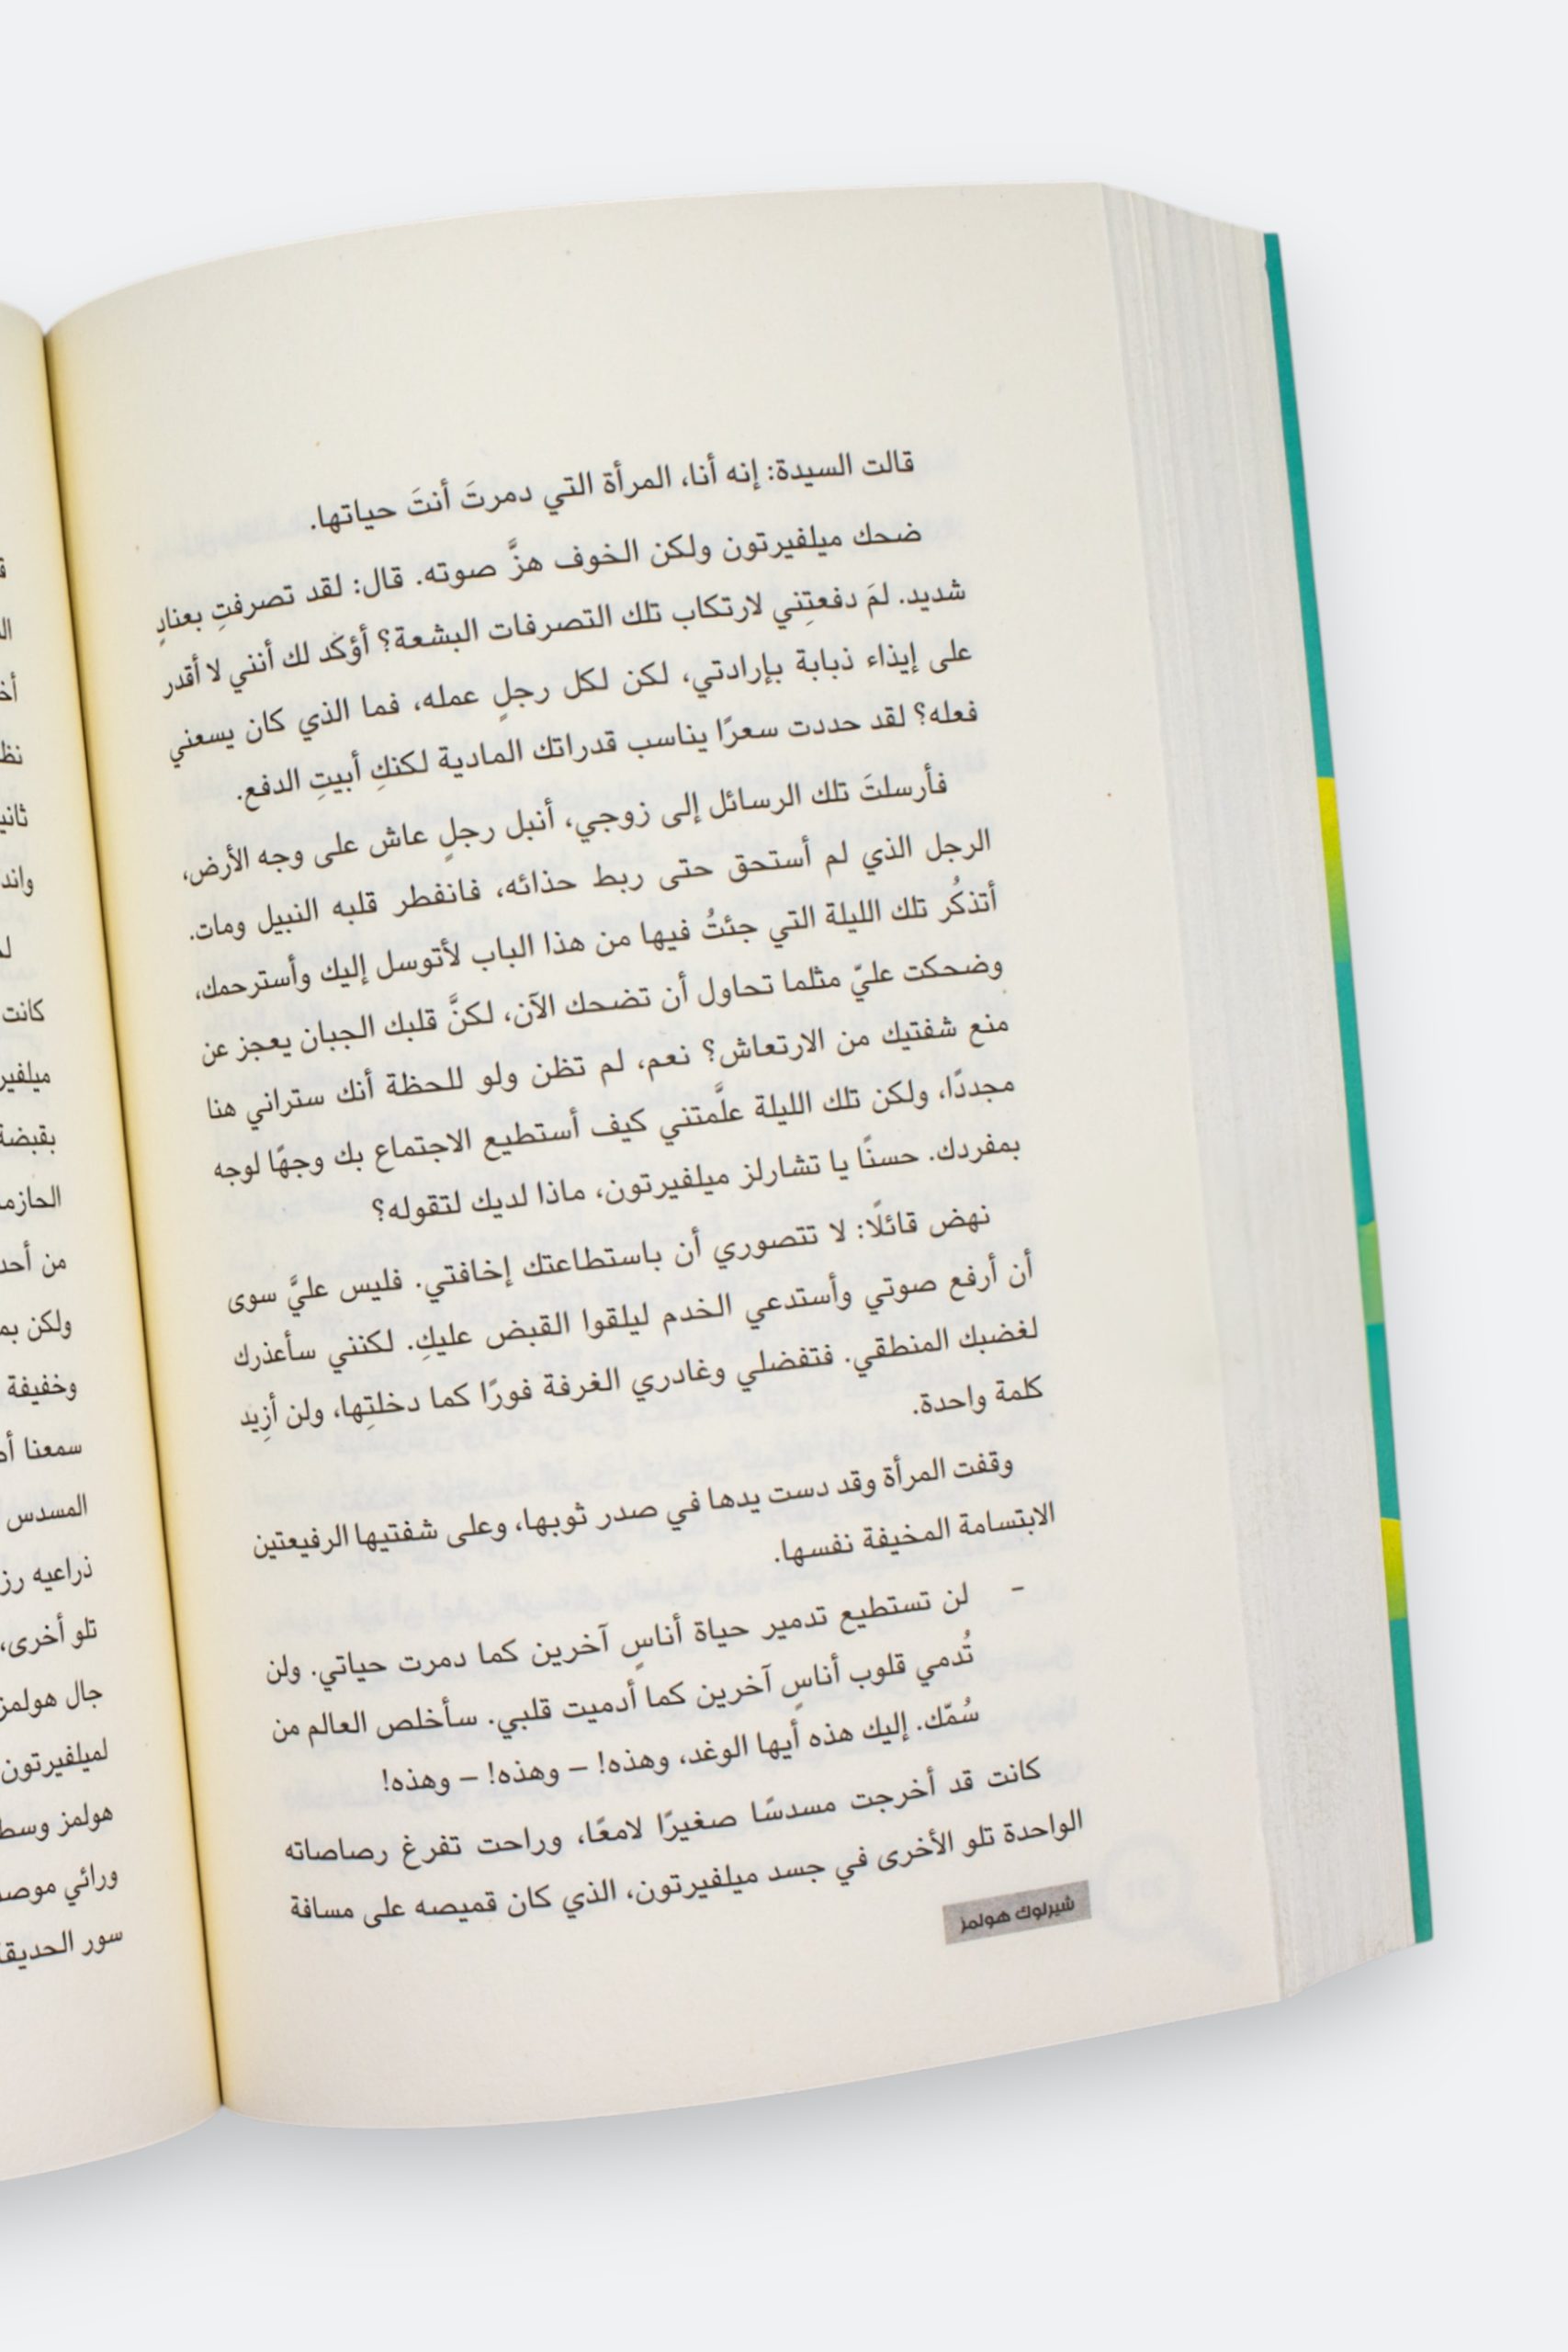 قالت السيدة: إنه أنا، المرأة التي دمرتَ أنتَ حياتها.
ضحك ميلفيرتون ولكن الخوف هزَّ صوته. قال: لقد تصرفتِ بعنادٍ
شديد. لمَ دفعتِني لارتكاب تلك التصرفات البشعة؟ أؤكد لك أنني لا أقدر
على إيذاء ذبابة بإرادتي، لكن لكل رجلٍ عمله، فما الذي كان يسعني
فعله؟ لقد حددت سعرًا يناسب قدراتك المادية لكنكِ أبيتِ الدفع.
فأرسلتَ تلك الرسائل إلى زوجي، أنبل رجلٍ عاش على وجه الأرض،
الرجل الذي لم أستحق حتى ربط حذائه، فانفطر قلبه النبيل ومات.
أتذكُر تلك الليلة التي جئتُ فيها من هذا الباب لأتوسل إليك وأسترحمك،
وضحكت عليّ مثلما تحاول أن تضحك الآن، لكنَّ قلبك الجبان يعجز عن
منع شفتيك من الارتعاش؟ نعم، لم تظن ولو للحظة أنك ستراني هنا
مجددًا، ولكن تلك الليلة علَّمتني كيف أستطيع الاجتماع بك وجهًا لوجه
بمفردك. حسنًا يا تشارلز ميلفيرتون، ماذا لديك لتقوله؟
نهض قائلًا: لا تتصوري أن باستطاعتك إخافتي. فليس عليَّ سوى
أن أرفع صوتي وأستدعي الخدم ليلقوا القبض عليكِ. لكنني سأعذرك
لغضبك المنطقي. فتفضلي وغادري الغرفة فورًا كما دخلتِها، ولن أزِيد
كلمة واحدة.
وقفت المرأة وقد دست يدها في صدر ثوبها، وعلى شفتيها الرفيعتين
الابتسامة المخيفة نفسها.
– لن تستطيع تدمير حياة أناسٍ آخرين كما دمرت حياتي. ولن
تُدمي قلوب أناسٍ آخرين كما أدميت قلبي. سأخلص العالم من
سُمّك. إليك هذه أيها الوغد، وهذه! – وهذه! – وهذه!
كانت قد أخرجت مسدسًا صغيرًا لامعًا، وراحت تفرغ رصاصاته
الواحدة تلو الأخرى في جسد ميلفيرتون، الذي كان قميصه على مسافة
شيرلوك هولمز
نظ
كانت
بقبضة
من أحد
وخفيفة
المسدس
ذراعيه
تلو أخرى،
جال هولمز
لميلفيرتون
هولمز وسط
ورائي
سور